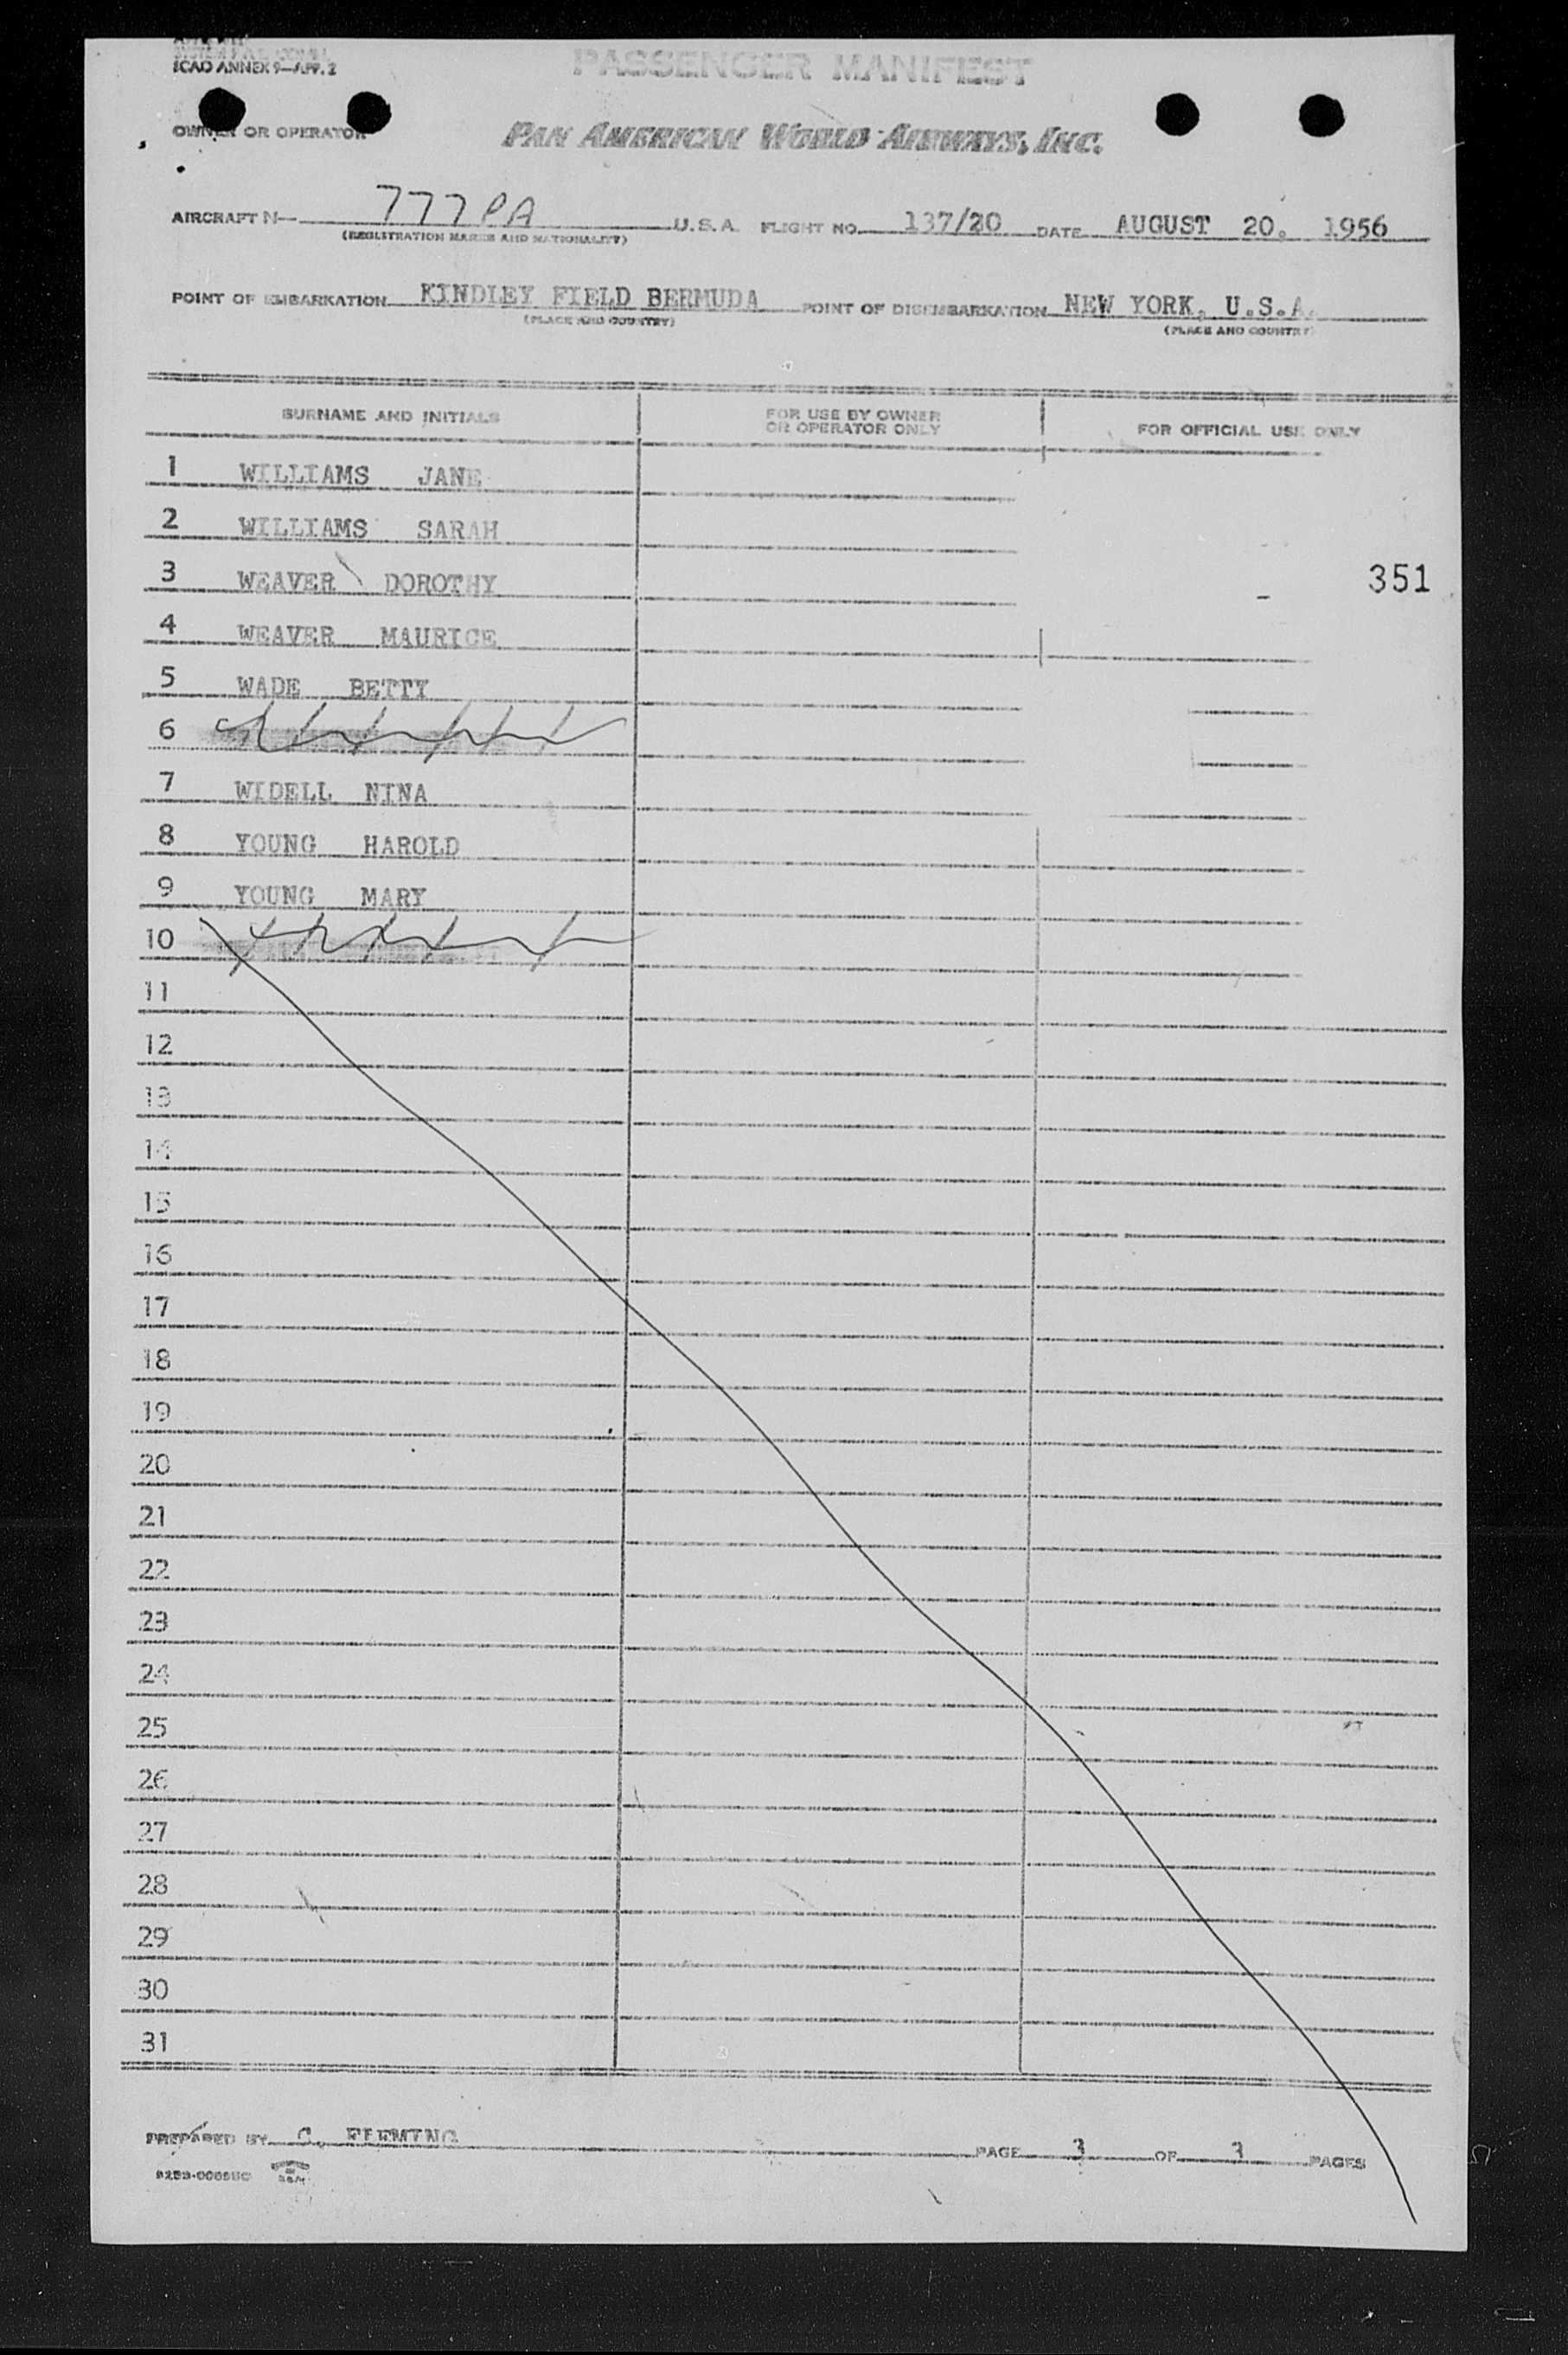 ICAO ANNEX 9—APP. 2
PASSENGER MANIFEST
OWNER OR OPERATOR PAN AMERICAN WORLD AIRWAYS, INC.
AIRCRAFT N— 777PA U.S.A. FLIGHT NO. 137/20 DATE AUGUST 20, 1956
(REGISTRATION MARKS AND NATIONALITY)
POINT OF EMBARKATION KINDLEY FIELD BERMUDA POINT OF DISEMBARKATION NEW YORK, U.S.A.
(PLACE AND COUNTRY) (PLACE AND COUNTRY)
SURNAME AND INITIALS FOR USE BY OWNER OR OPERATOR ONLY FOR OFFICIAL USE ONLY
1 WILLIAMS JANE
2 WILLIAMS SARAH
3 WEAVER DOROTHY 351
4 WEAVER MAURICE
5 WADE BETTY
6
7 WIDELL NINA
8 YOUNG HAROLD
9 YOUNG MARY
10
11
12
13
14
15
16
17
18
19
20
21
22
23
24
25
26
27
28
29
30
31
PREPARED BY C. FLEMING PAGE 3 OF 3 PAGES